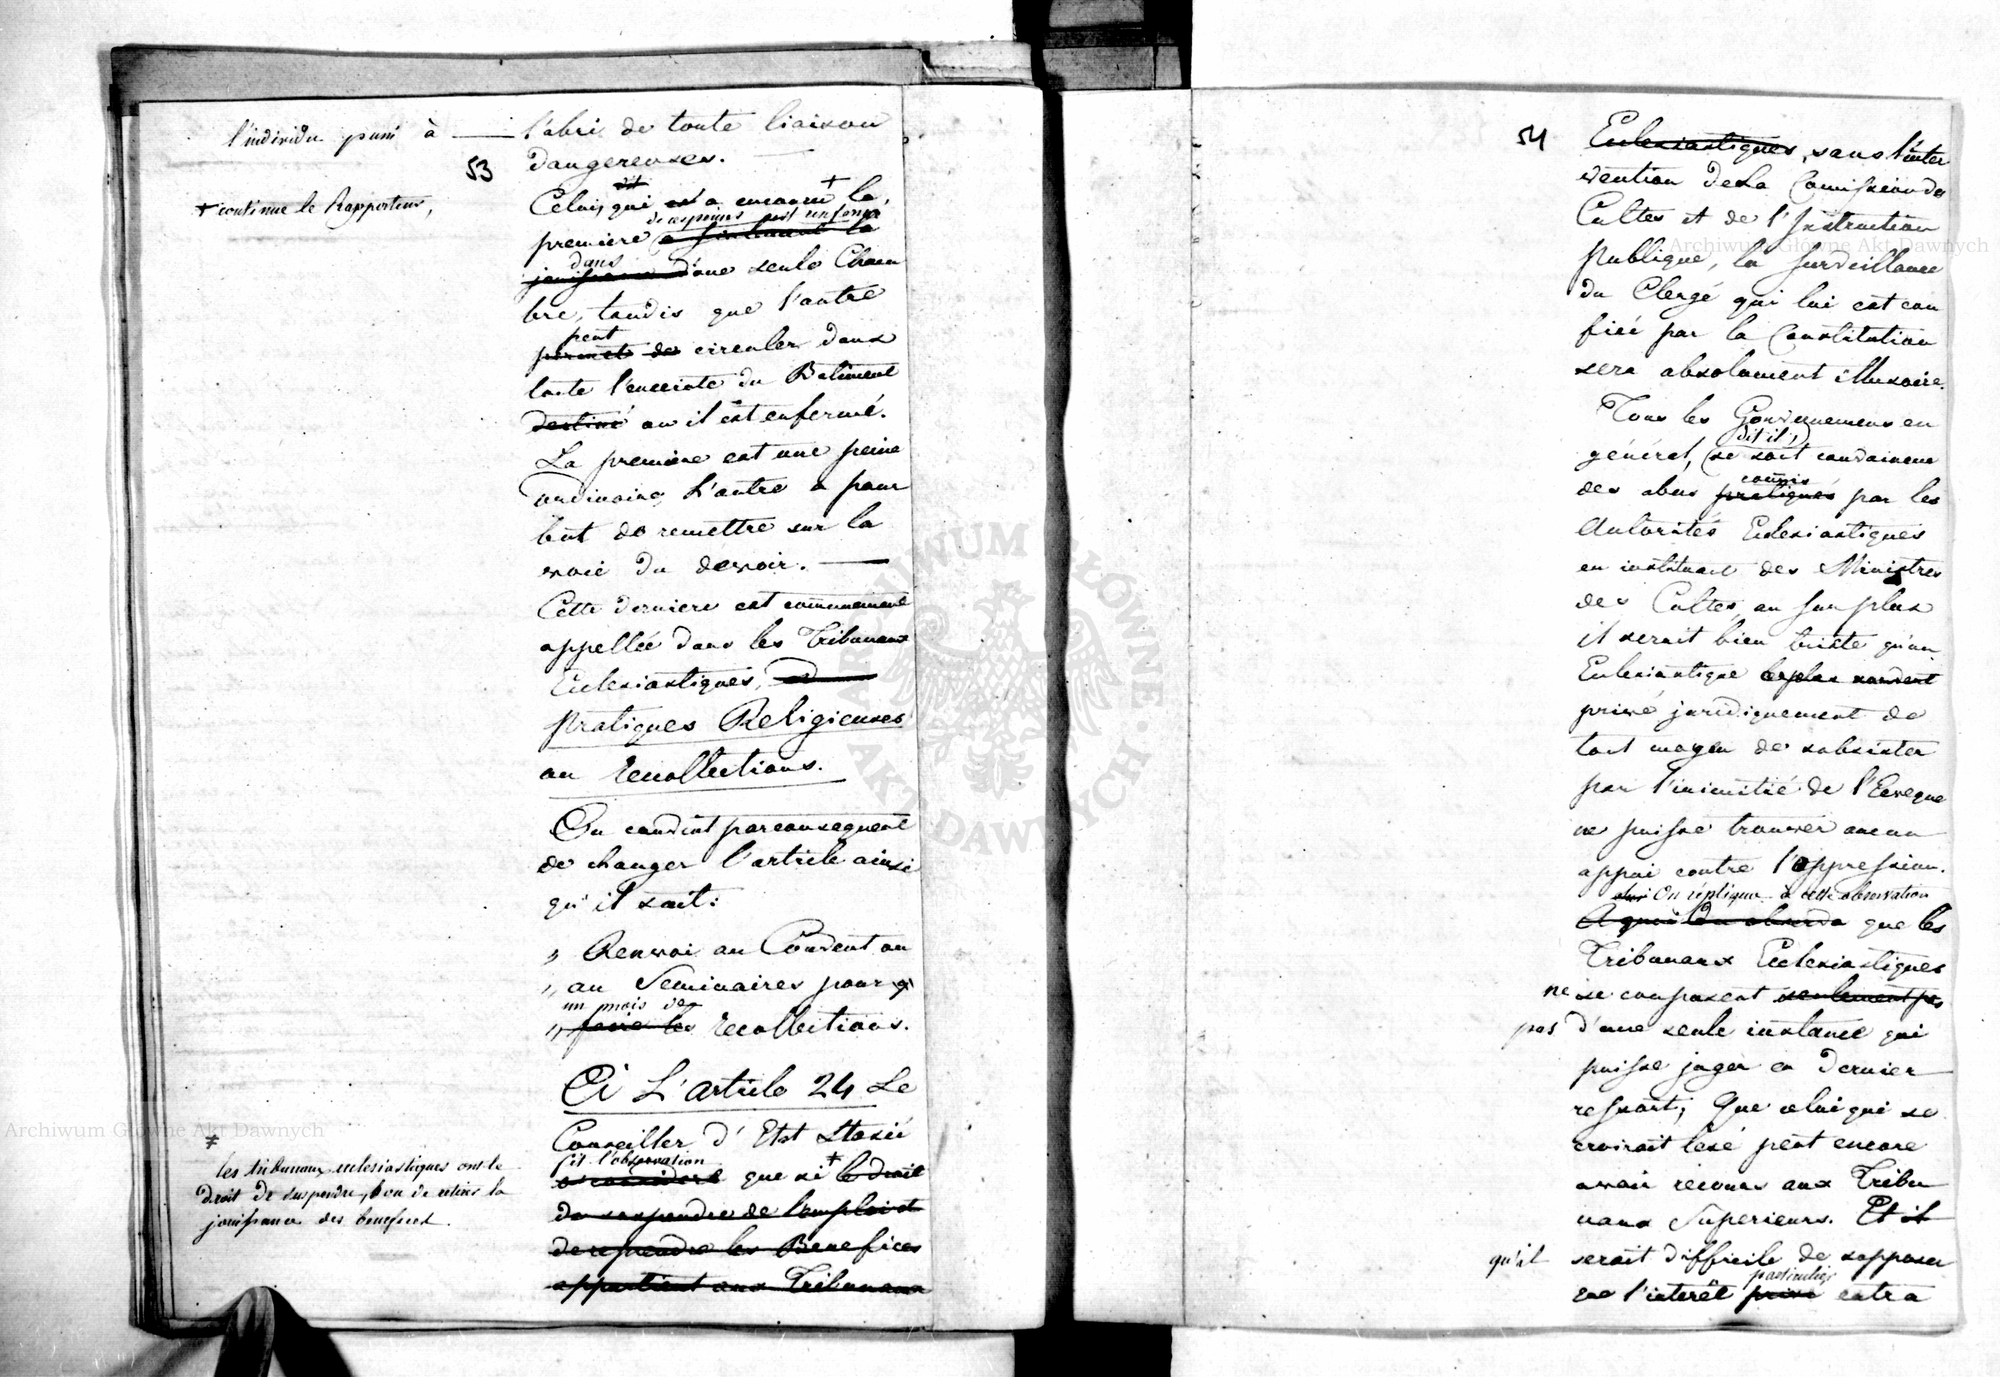 l'individu puni à
l'abri de toute liaison
dangereuses.
53
+ continue le Rapporteur,
dit
Celui, qui est a encouru + la
de ces peines est renfermé
premiere a seulement la
dans
jouissance d'une seule Cham
bre, tandis que l'autre
peut
permet de circuler dans
toute l'enceinte du Batiment
destiné ou il est enfermé.
La premiere est une peine
ordinaire, L'autre a pour
but de remettre sur la
voie du devoir.
Cette derniere est communement
appellée dans les Tribunaux
Eclesiastiques,
pratiques Religieuses
ou recollections.
On convint par consequent
de changer l'article ainsi
qu'il suit:
" Renvoi au Couvent ou
" au Seminaires pour
un mois de
" faire les recollections.
A L'article 24 Le
Conseiller d'Etat Stasić
fit l'observation
que si + le droit
de suspendre de l'emploi et
de reprendre les Benefices
appartient aux Tribunaux
+
les tribunaux eclesiastiques ont le
droit de suspendre, bou de retirer la
jouissance des benefices.
54
Eclesiastiques, sans l'inter
vention de la Comission des
Cultes et de l'Instruction
publique, la surveillance
du Clergé qui lui est con
fiée par la Constitution
sera absolument illusoire.
Tous les Gouvernemens en
dit il,
général, se sont convaincus
commis
des abus pratiqués par les
Autorités Eclesiastiques
en instituant des Ministres
des Cultes, au surplus
il serait bien triste qu'un
Eclesiastique le plus souvent
privé juridiquement de
tout moyen de subsister
par l'inimitié de l'Eveque
ne puisse trouver aucun
appui contre l'oppression.
On réplique à cette observation
A quoi l'on observa que les
Tribunaux Ecclesiastiques
ne se composent seulement pas
pas d'une seule instance qui
puisse juger en dernier
ressort; Que celui qui se
croirait lesé peut encore
avoir recours aux Tribu
naux Superieurs. Et il
qu'il serait difficile de supposer
particulier
que l'interêt privé entra